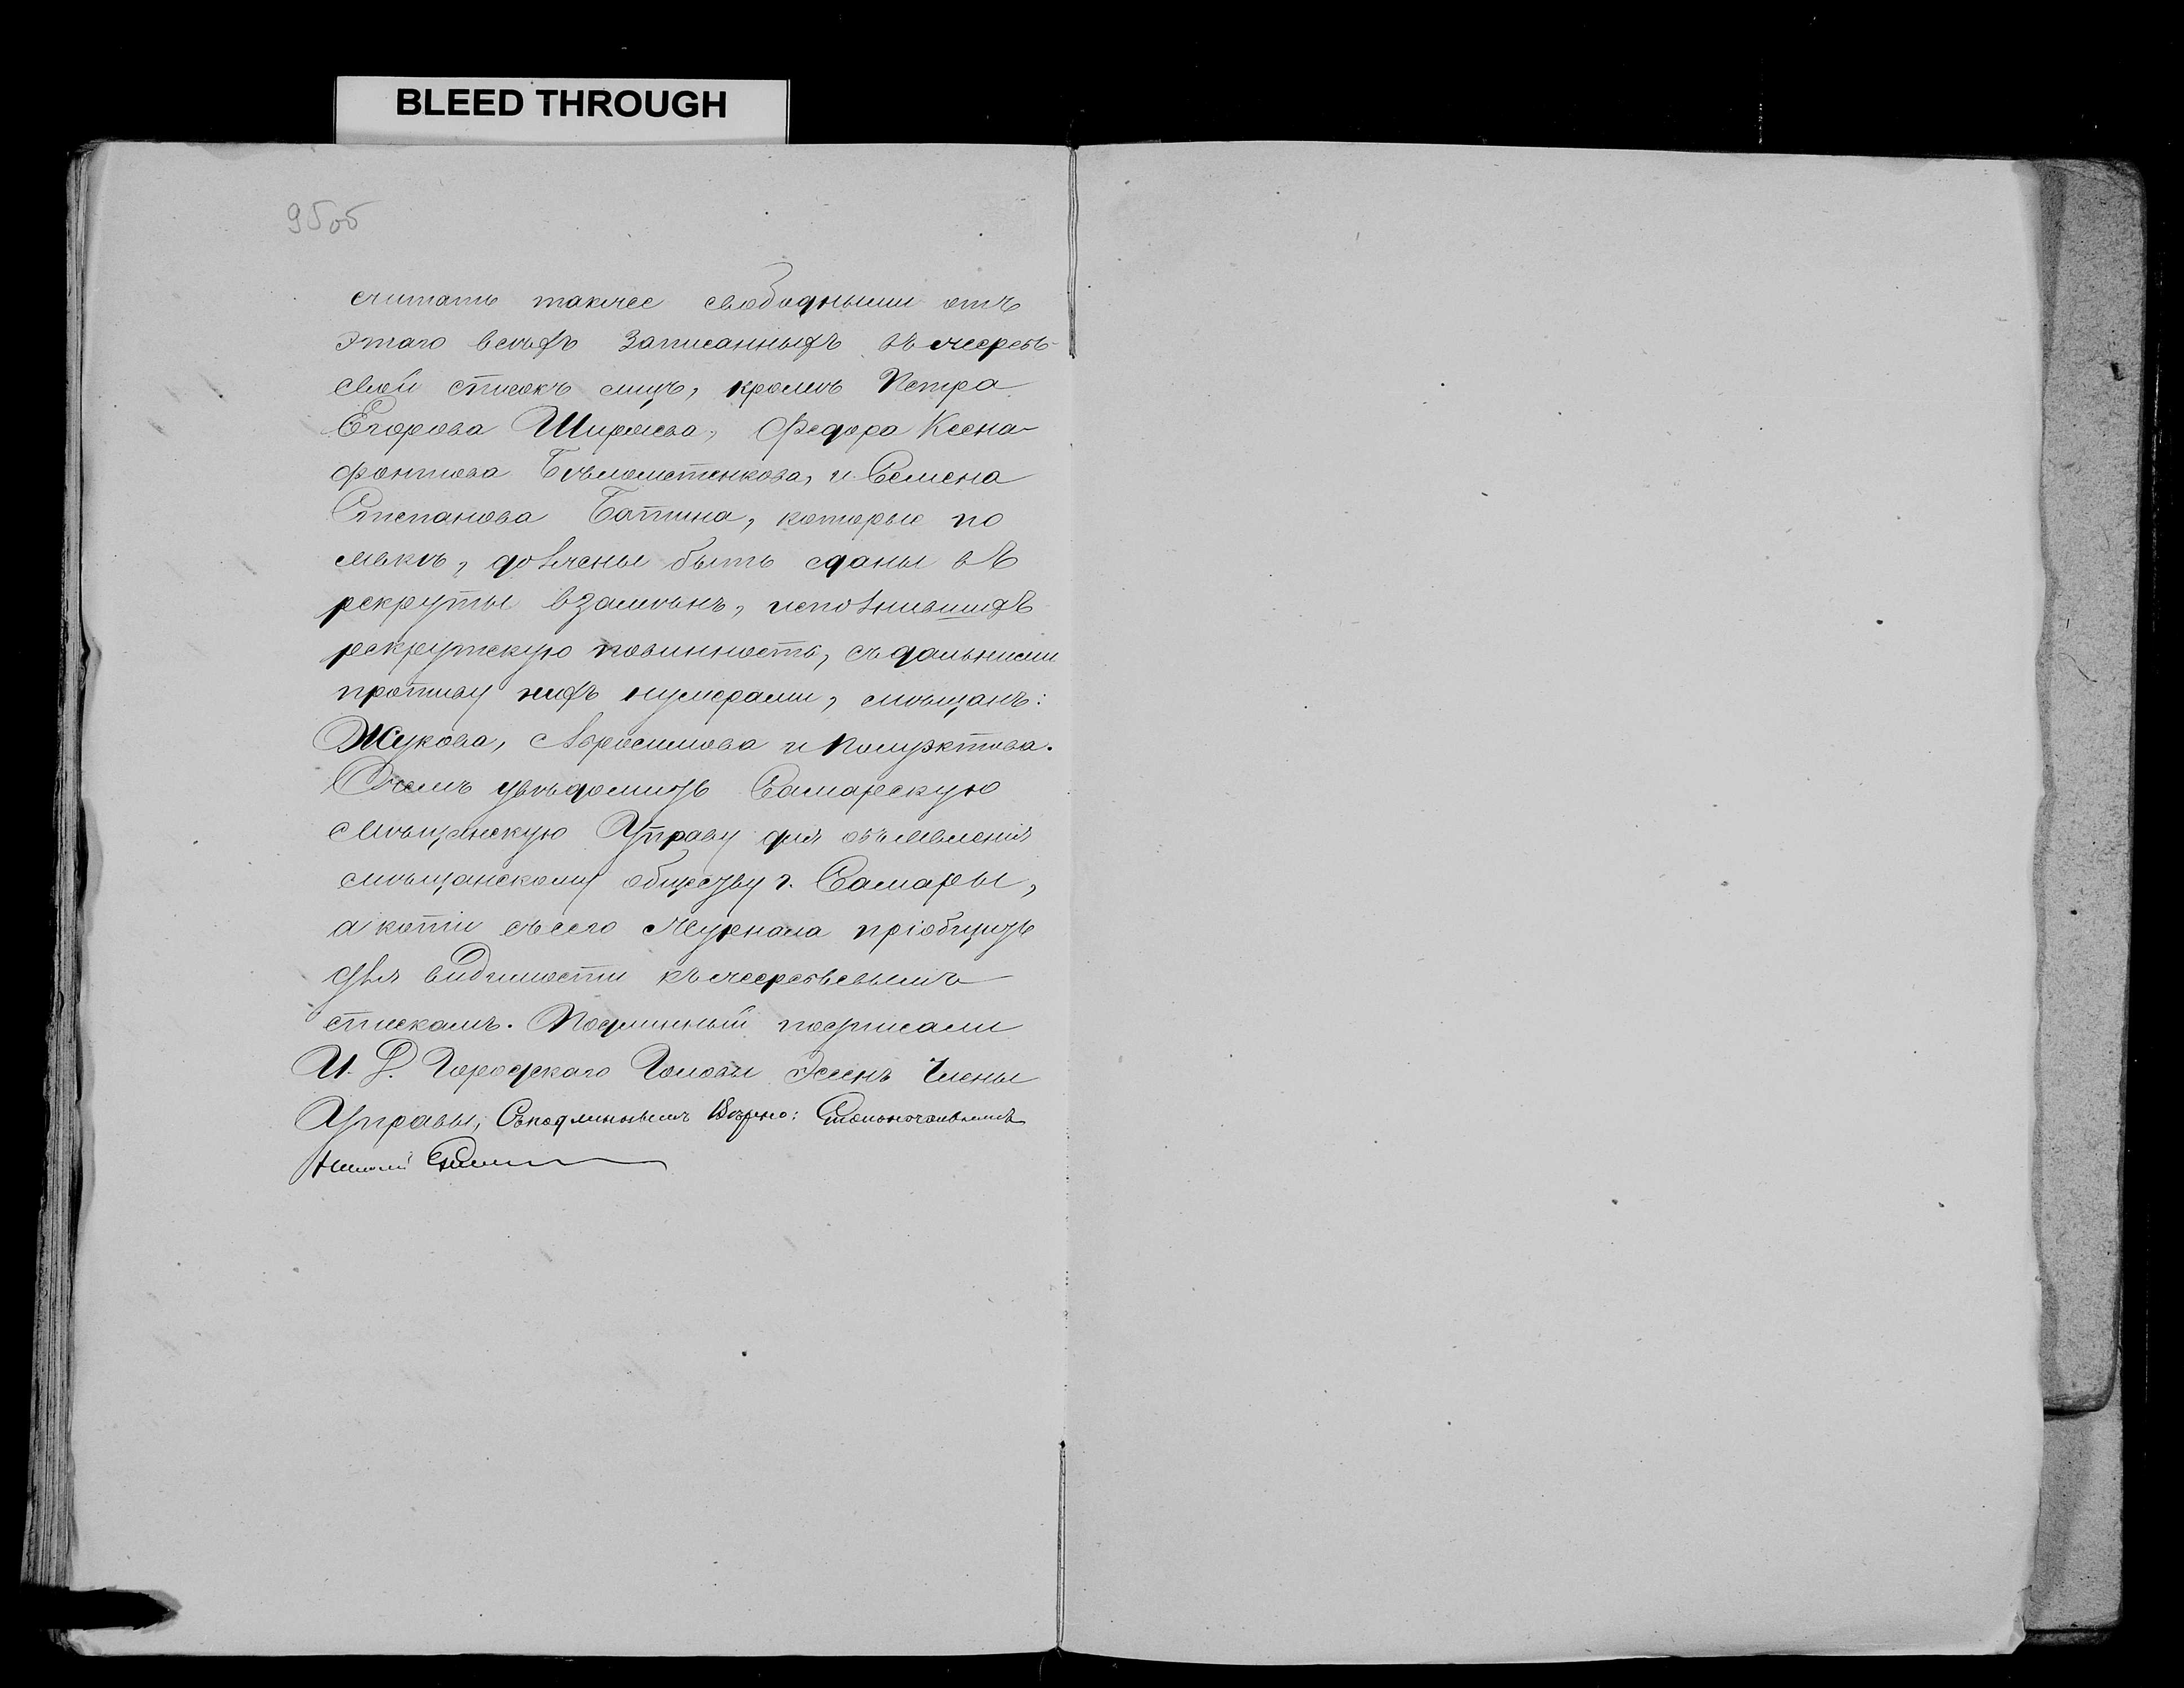 BLEED THROUGH
95об
считать также свободными отъ
этаго всѣхъ записанныхъ въ жеребь-
евой списокъ лицъ, кромѣ Петра
Егорова Ширяева, Федора Ксено-
фонтова и Семена
Степанова Батина, которые по
явкѣ, должены быть сданы въ
рекруты взамѣнъ, исполнившихъ
рекрутскую повинность, съ дальними
противу нихъ нумерами, мѣщанъ:
Жукова, Абросимова и Полуэктова.
О чемъ увѣдомить Самарскую
Мѣщанскую Управу для объявленія
мѣщанскому обществу г. Самары,
а копіи съ сего Журнала пріобщить
для видимости къ жеребьевымъ
спискамъ. Подлинный подписали
И. Д. Городскаго Головы Члены
Управы, Съ подлиннымъ Вѣрно: